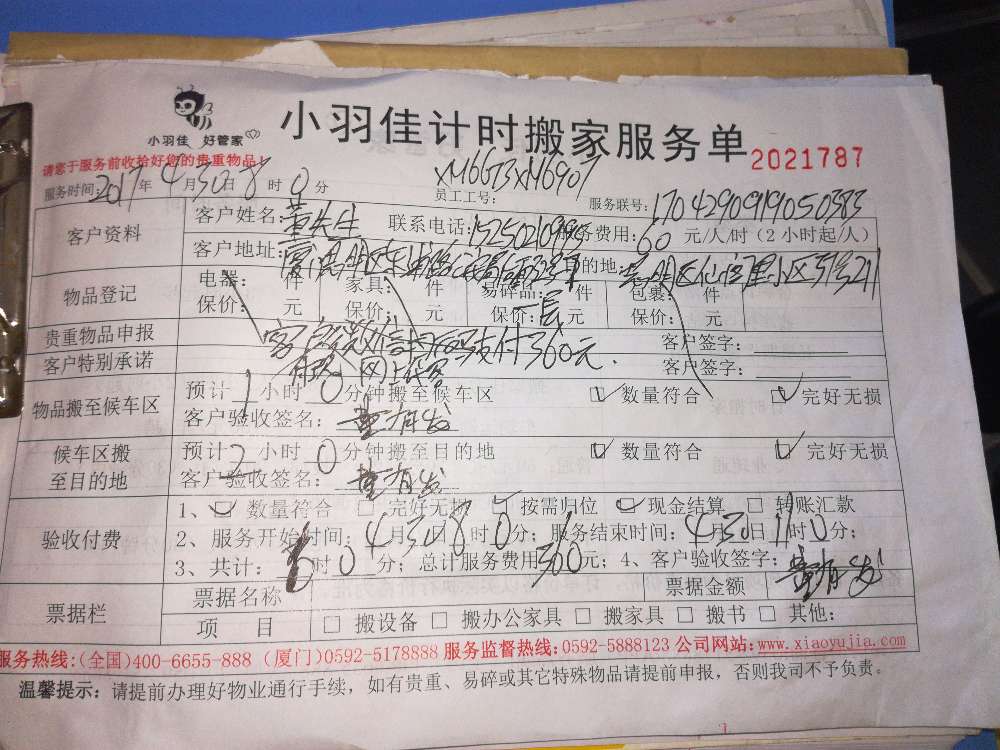 小羽佳 好管家
小羽佳计时搬家服务单 2021787
请您于服务前收拾好您的贵重物品！
服务时间：2017年4月30日8时0分 员工工号：XM6613 XM6907 服务联号：170429091905 0383
客户资料 客户姓名：董先生 联系电话： 服务费用：60元/人/时（2小时起/人）
客户地址： 目的地：
物品登记 电器： 件 家具： 件 易碎品： 件 包裹： 件
保价： 元 保价： 元 保价： 元 保价： 元
贵重物品申报 客户签字：
客户特别承诺 支付360元. 客户签字：
物品搬至候车区 预计1小时0分钟搬至候车区 数量符合 完好无损
客户验收签名：董有发
候车区搬至目的地 预计2小时0分钟搬至目的地 数量符合 完好无损
客户验收签名：董有发
验收付费 1、数量符合 完好无损 按需归位 现金结算 转账汇款
2、服务开始时间：4月30日8时0分；服务结束时间：4月30日11时0分；
3、共计：6时0分；总计服务费用360元；4、客户验收签字：董有发
票据栏 票据名称 票据金额
项 目 搬设备 搬办公家具 搬家具 搬书 其他：
服务热线：(全国)400-6655-888 (厦门)0592-5178888 服务监督热线：0592-5888123 公司网站：www.xiaoyujia.com
温馨提示：请提前办理好物业通行手续，如有贵重、易碎或其它特殊物品请提前申报，否则我司不予负责。